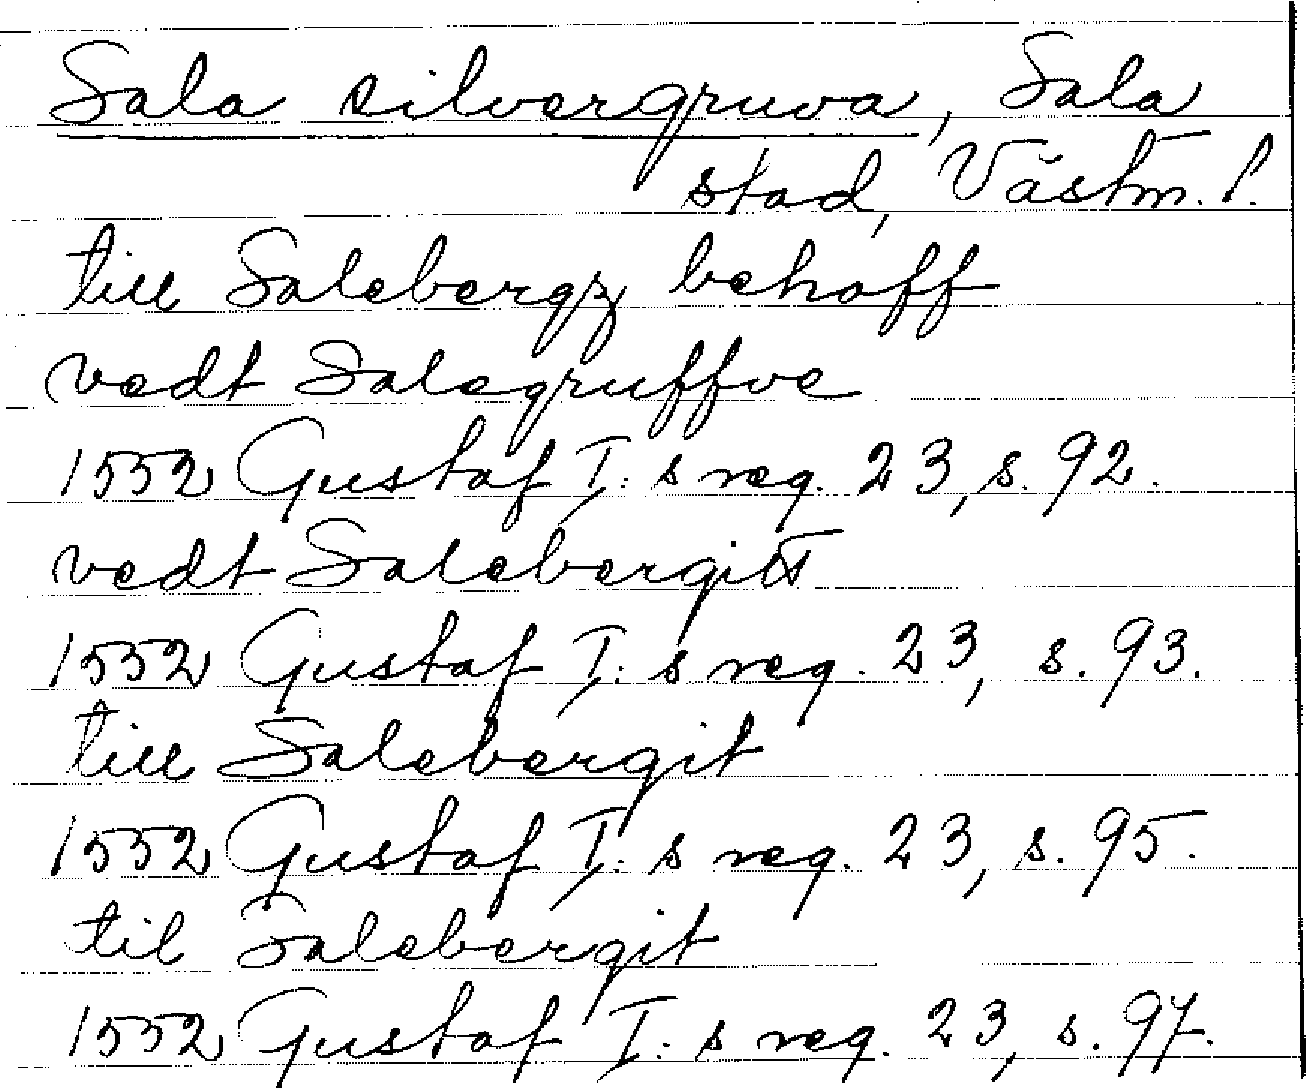 Sala silvergruva, Sala
stad, Västm. l.
till Salebergz behoff
vedt Salegruffve
1552 Gustaf I: s reg. 23, s. 92.
vedt Salebergitt
1552 Gustaf I: s reg. 23, s. 93.
till Salebergit
1552 Gustaf I: s reg. 23, s. 95.
til Salebergit
1552 Gustaf I: s reg. 23, s. 97.